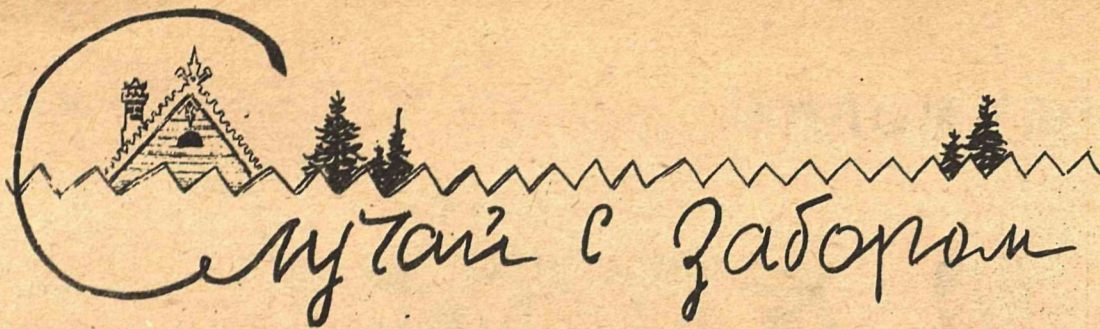 Случай с забором